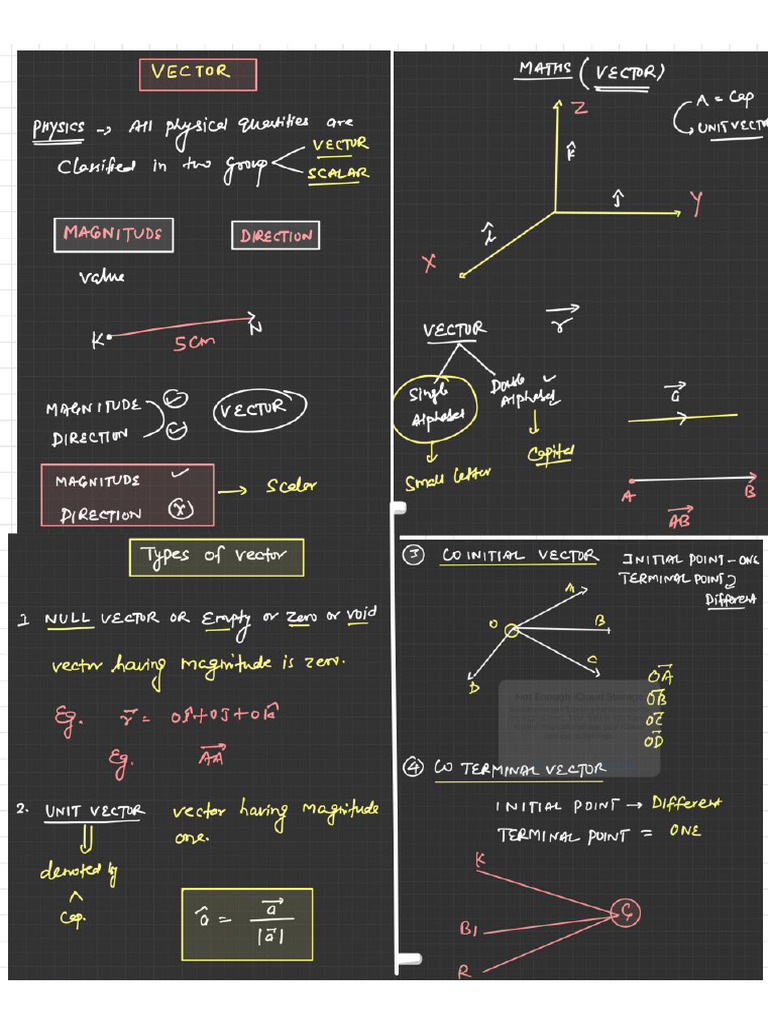 VECTOR
PHYSICS → All physical quantities are
Classified in two group
VECTOR
SCALAR
MAGNITUDE
DIRECTION
value
K
N
5cm
MAGNITUDE ✓
DIRECTION ✓
VECTOR
MAGNITUDE ✓
DIRECTION (x)
→ Scalar
MATHS (VECTOR)
^ = Cap
UNIT VECTOR
Z
k̂
ĵ
Y
î
X
VECTOR
r⃗
Single
Alphabet
Double ✓
Alphabet
Small letter
Capital
a⃗
A
B
AB⃗
Types of vector
1 NULL VECTOR OR Empty or Zero or void
vector having magnitude is zero.
Eg. r⃗ = 0î+0ĵ+0k̂
Eg. AA⃗
2. UNIT VECTOR vector having magnitude
one.
denoted by
^
Cap.
â = a⃗ / |a⃗|
③ CO INITIAL VECTOR
INITIAL POINT - ONE
TERMINAL POINT
Different
A
O
B
C
D
OA⃗
OB⃗
OC⃗
OD⃗
Not Enough iCloud Storage
④ CO TERMINAL VECTOR
INITIAL POINT → Different
TERMINAL POINT = ONE
K
R